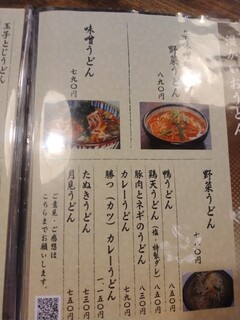 野菜うどん
八九〇円
味噌うどん
七九〇円
野菜うどん
七八〇円
鴨うどん
八五〇円
鶏天うどん(塩・特製ダレ)
八五〇円
豚肉とネギのうどん
八三〇円
カレーうどん
七九〇円
勝つ(カツ)カレーうどん
一、一五〇円
たぬきうどん
七三〇円
月見うどん
七五〇円
ご意見・ご感想は
こちらまでお願いします。
玉子とじうどん